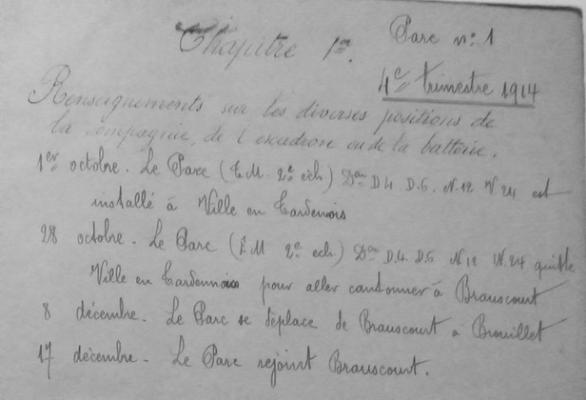 Chapitre 1er.
Parc n° 1
4e trimestre 1914
Renseignements sur les diverses positions de
la compagnie, de l'escadron ou de la batterie.
1er octobre. Le Parc (E.M. 2e ech) Don D.4 D.5. N.12 N.24 est
installé à Ville en Tardenois
28 octobre. Le Parc (E.M 2e ech) Don D.4. D.5 N12 N.24 quitte
Ville en Tardennois pour aller cantonner à Brauscourt
8 décembre. Le Parc se déplace de Brauscourt à Brouillet
17 décembre. Le Parc rejoint Brauscourt.